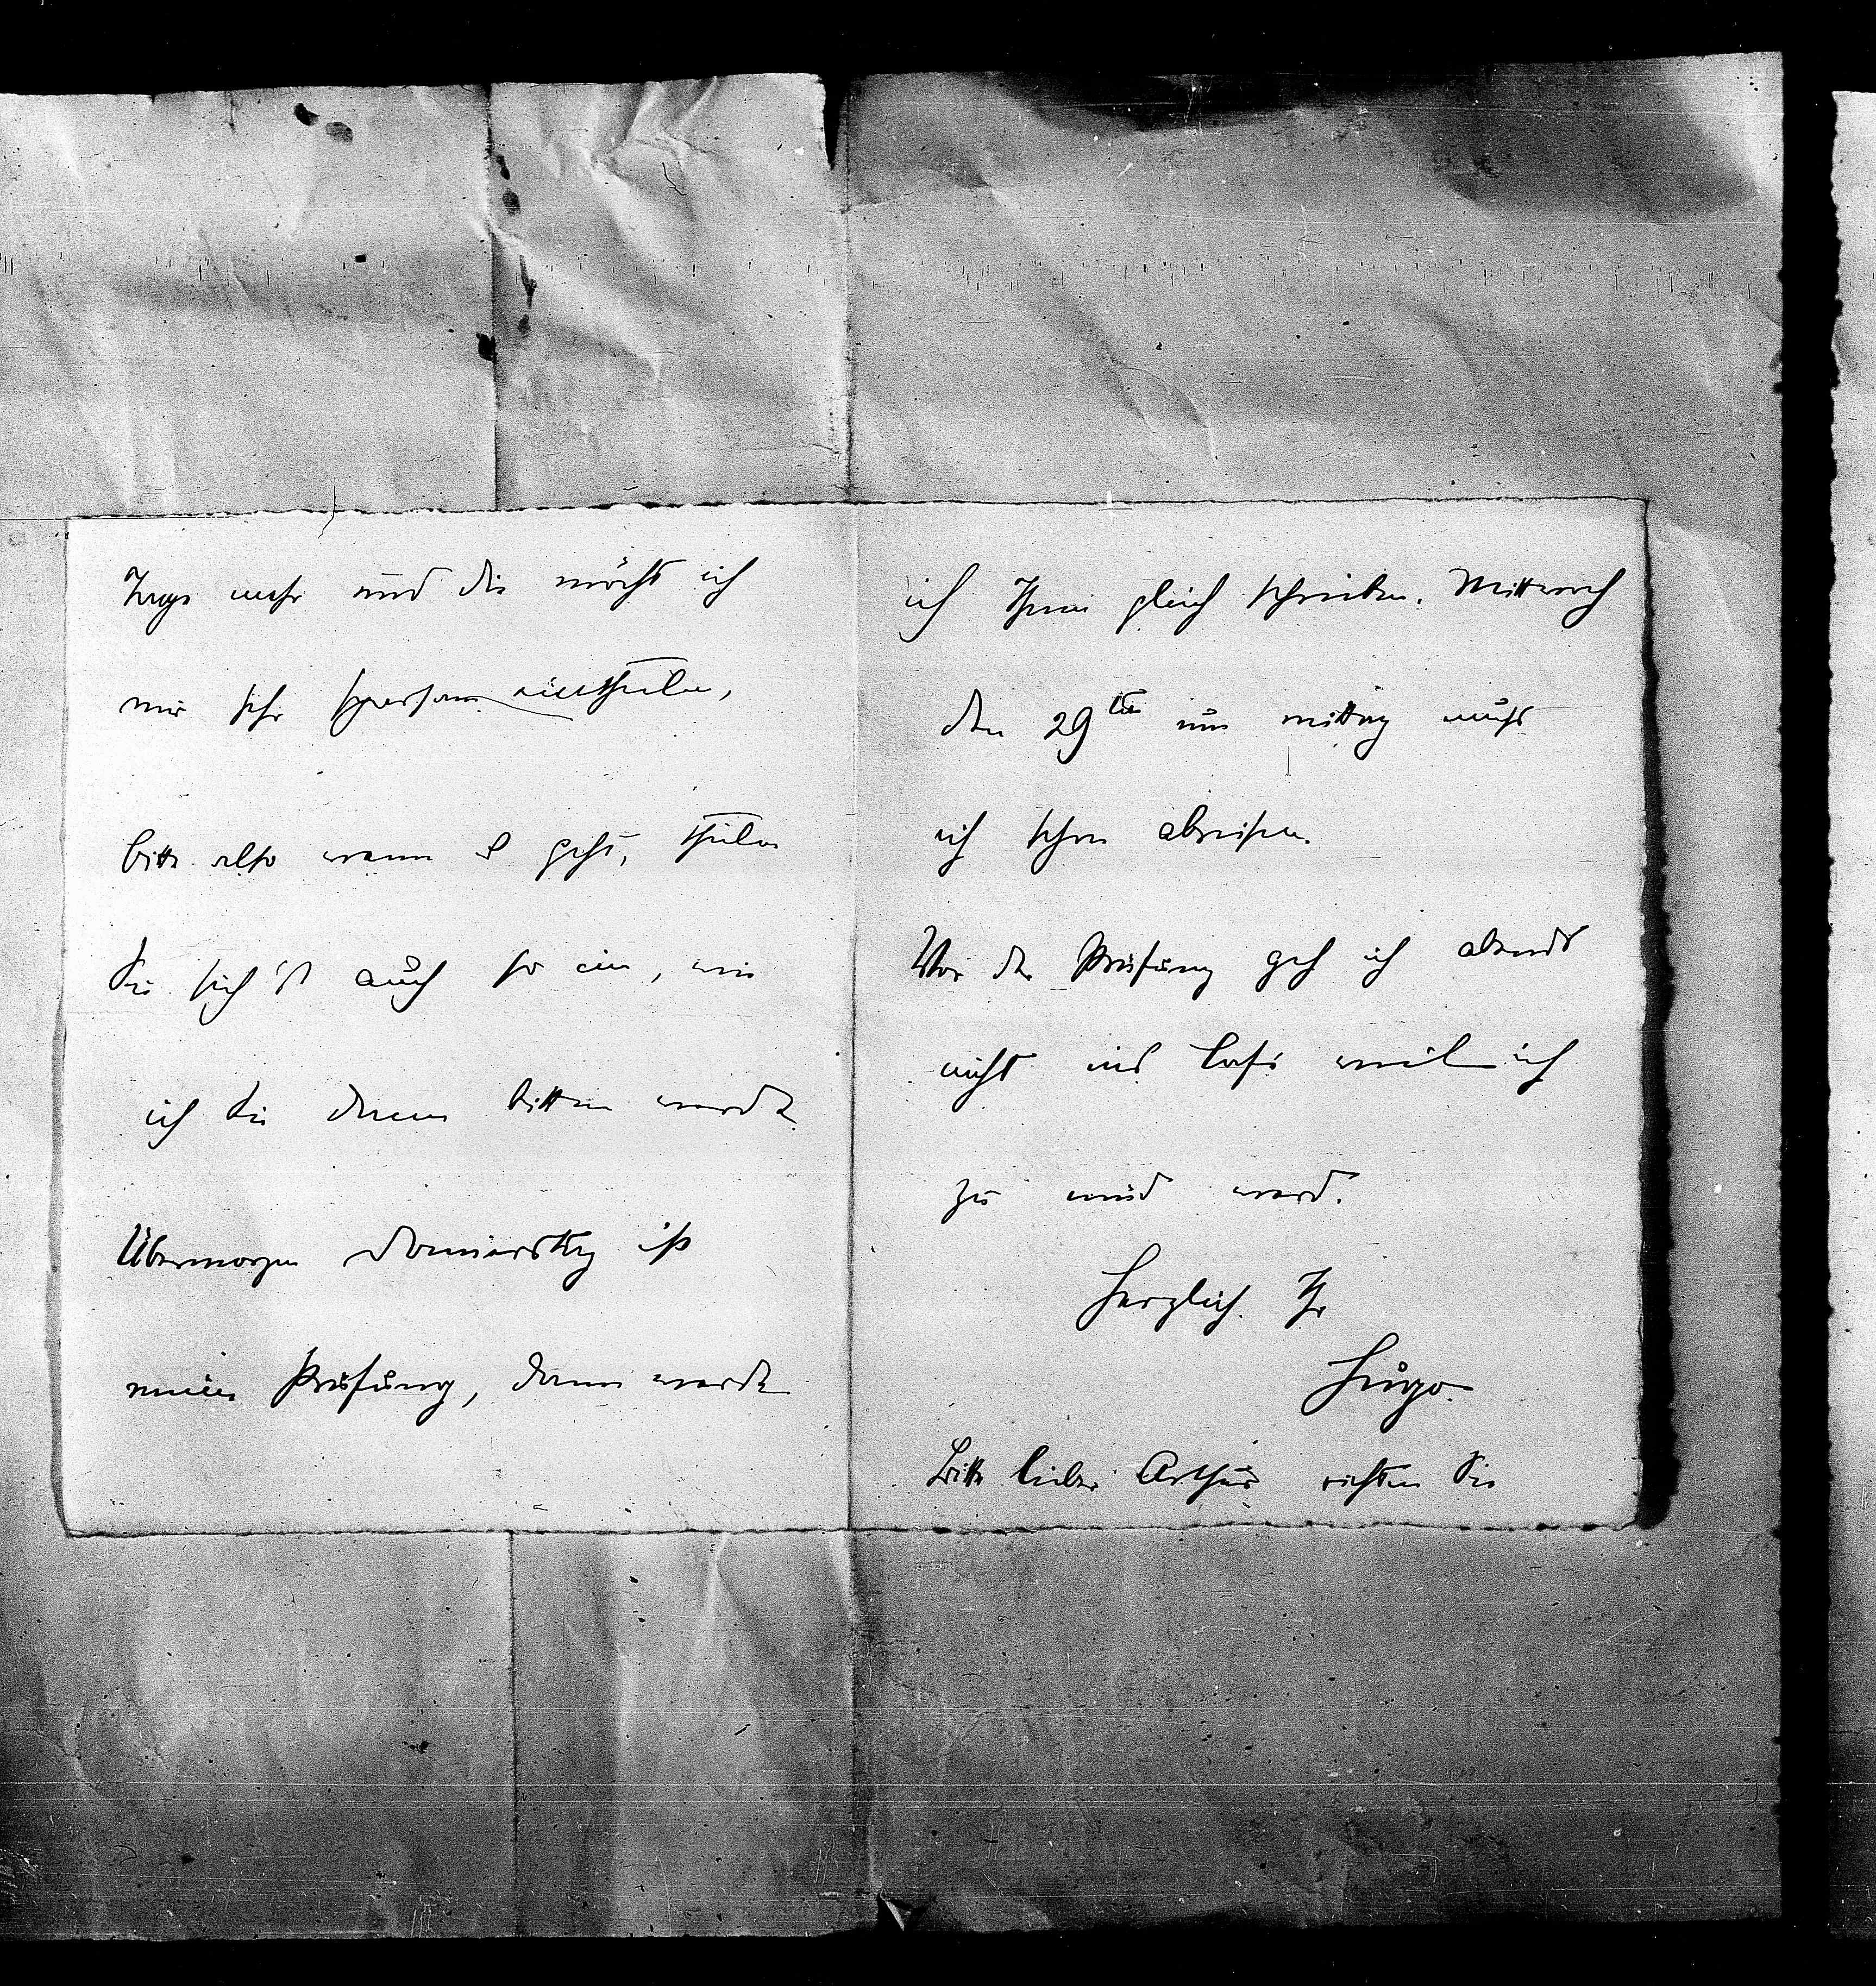 Tage mehr und die möcht ich
mir sehr sparsam eintheilen,
bitte also wenn es geht, theilen
Sie sich's auch so ein, wie
ich Sie drum bitten werde.
Übermorgen Donnerstag ist
meine Prüfung, dann werde
ich Ihnen gleich schreiben. Mittwoch
den 29ten um mittag muß
ich schon abreisen.
Vor der Prüfung geh ich abends
nicht ins Café weil ich
zu müd werd.
Herzlich Ihr
Hugo.
Bitte lieber Arthur richten Sie